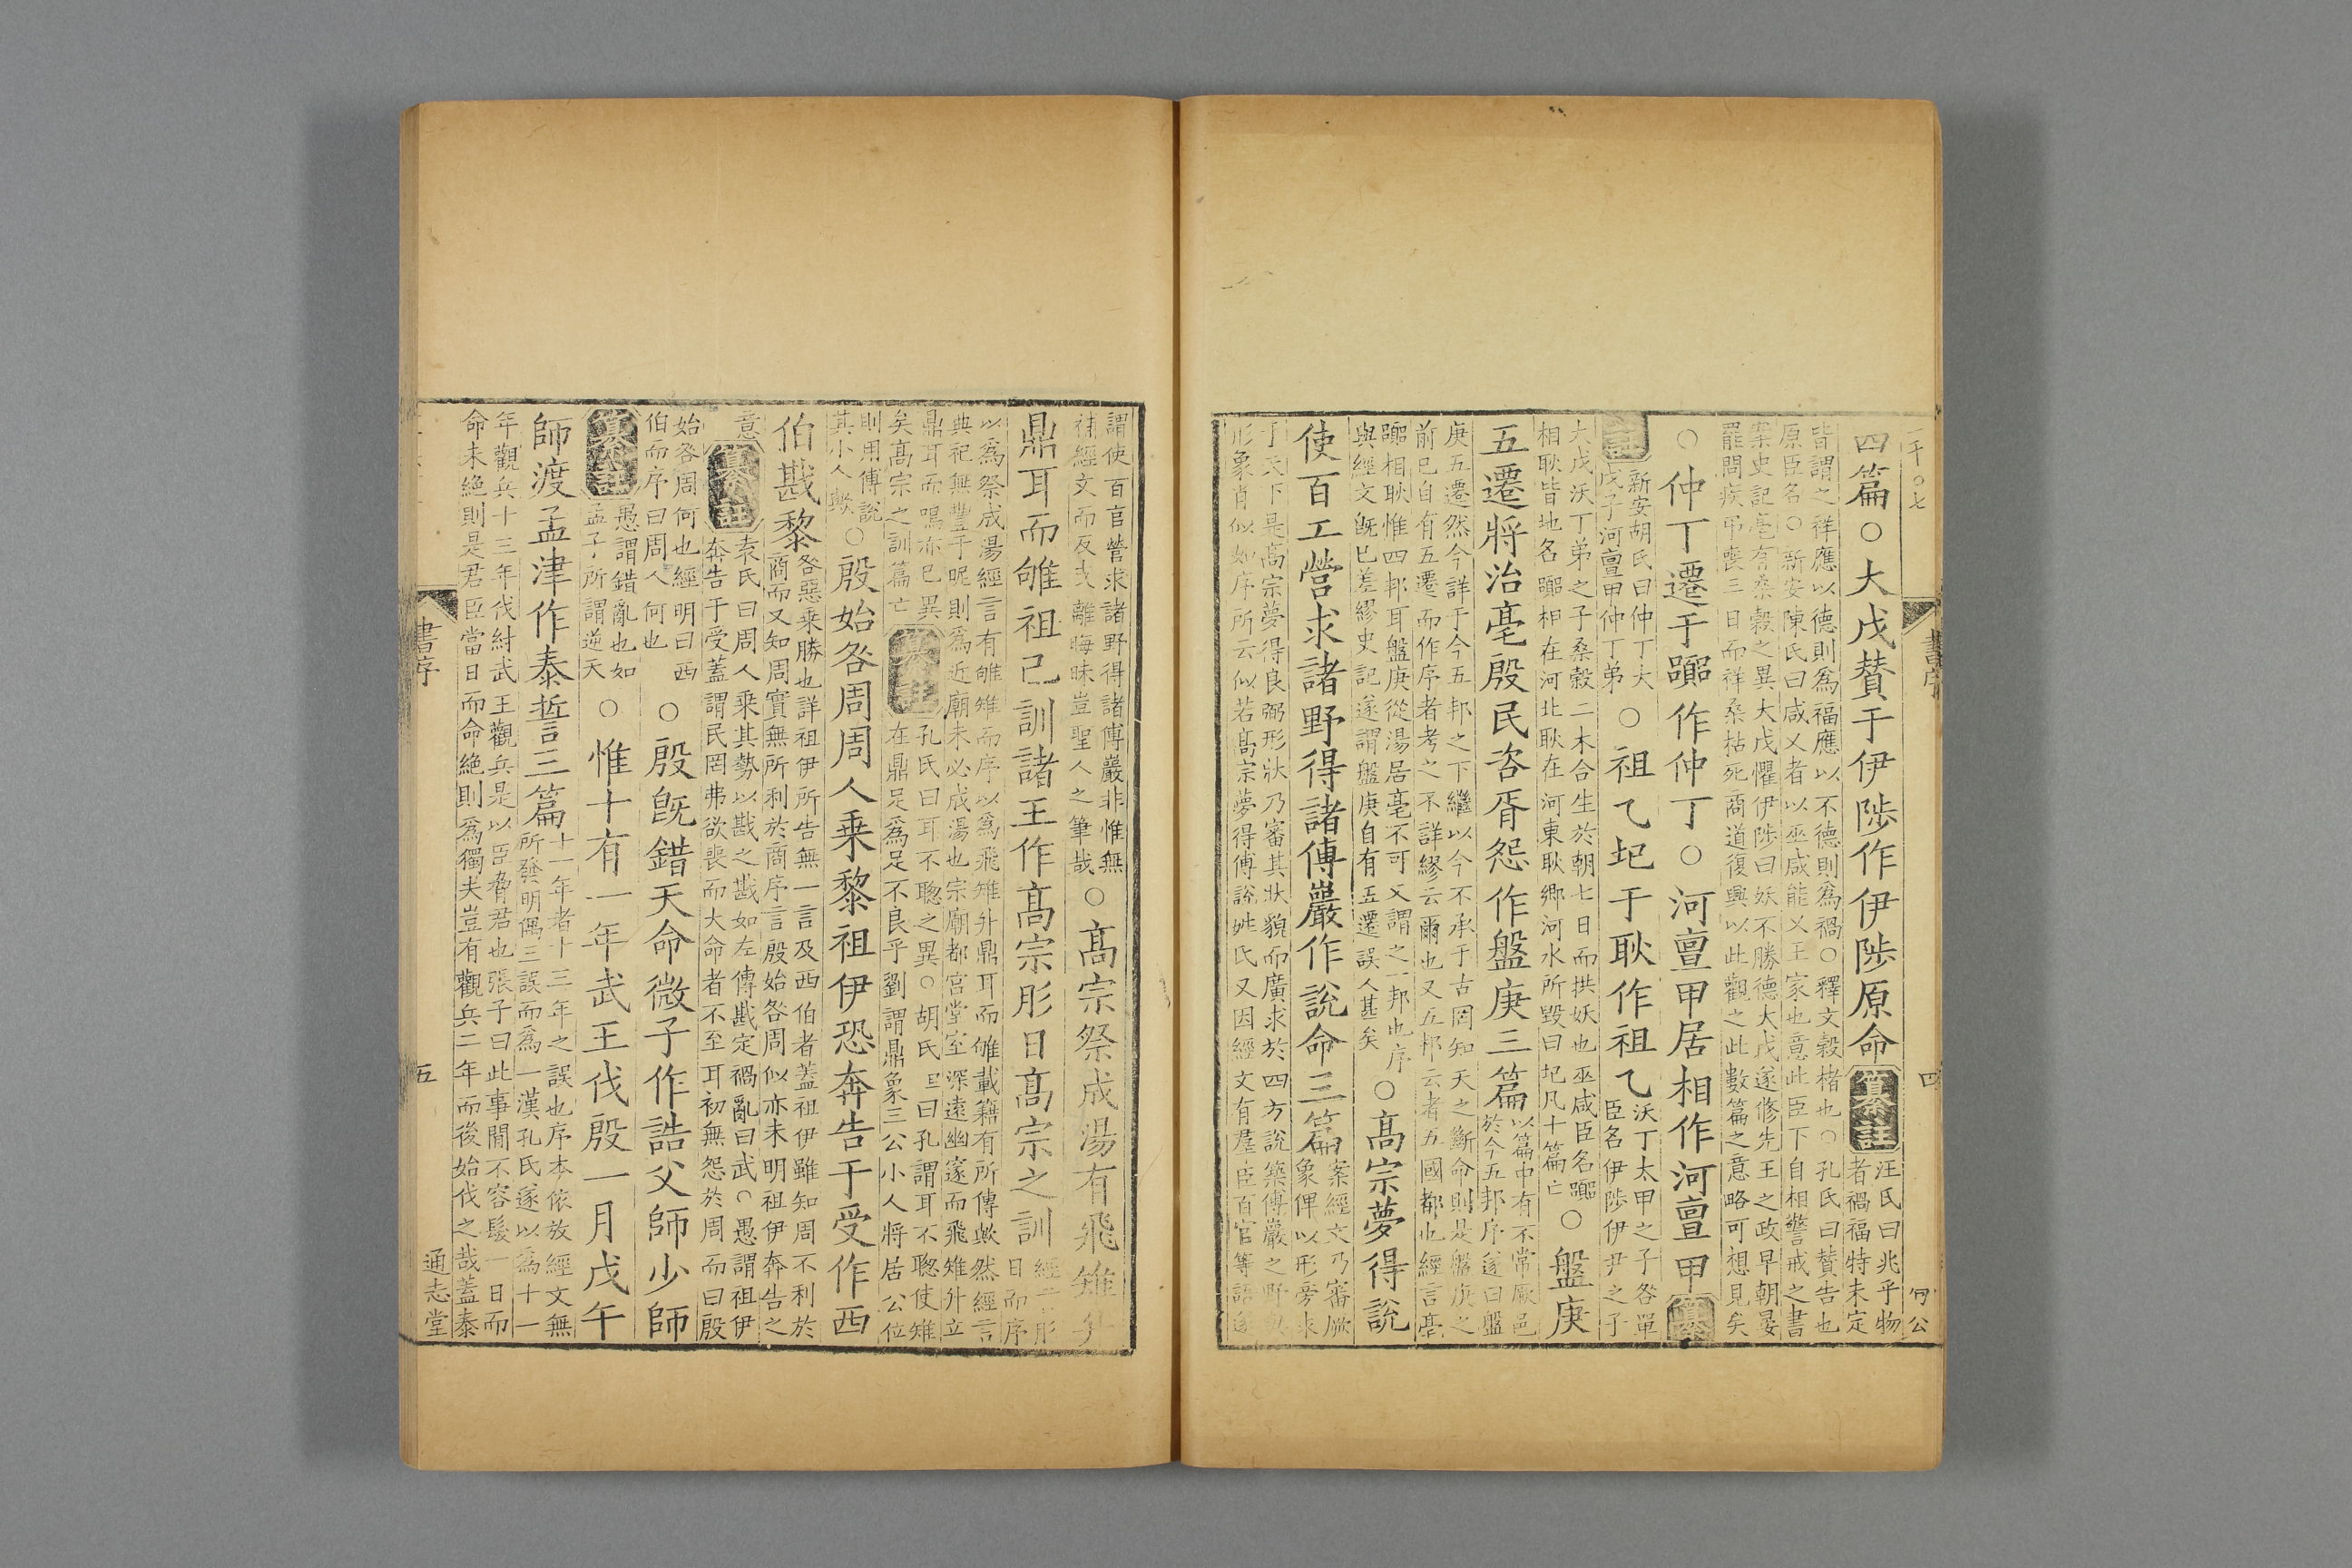 四篇○大戊賛于伊陟作伊陟原命纂註汪氏曰兆乎物者禍福特未定
皆謂之祥應以德則爲福應以不德則爲禍○釋文榖楮也○孔氏曰賛告也
原臣名○新安陳氏曰咸乂者以巫咸能乂王家也意此臣下自相警戒之書
案史記亳有桑榖之異大戊懼伊陟曰妖不勝德大戊遂修先王之政早朝晏
罷問疾弔喪三日而祥桑枯死商道復興以此觀之此數篇之意略可想見矣
○仲丁遷于嚻作仲丁○河亶甲居相作河亶甲纂
註新安胡氏曰仲丁大戊子河亶甲仲丁弟○祖乙圯于耿作祖乙沃丁太甲之子咎單臣名伊陟伊尹之子
大戊沃丁弟之子桑榖二木合生於朝七日而拱妖也巫咸臣名嚻
相耿皆地名嚻相在河北耿在河東耿鄉河水所毀曰圯凡十篇亡○盤庚
五遷將治亳殷民咨胥怨作盤庚三篇以篇中有不常厥邑于今五邦序遂曰盤
庚五遷然今詳于今五邦之下繼以今不承于古罔知天之斷命則是盤庚之
前已自有五遷而作序者考之不詳繆云爾也又五邦云者五國都也經言亳
嚻相耿惟四邦耳盤庚從湯居亳不可又謂之一邦也序
與經文旣已差繆史記遂謂盤庚自有五遷誤人甚矣○髙宗夢得說
使百工營求諸野得諸傅巖作說命三篇案經文乃審厥象俾以形旁求
于天下是髙宗夢得良弼形狀乃審其狀貌而廣求於四方說築傅巖之野
形象肖似如序所云似若髙宗夢得傅說姓氏又因經文有羣臣百官等語遂
謂使百官營求諸野得諸傅巖非惟無
補經文而反支離晦昧豈聖人之筆哉○髙宗祭成湯有飛雉升
鼎耳而雊祖己訓諸王作髙宗肜日髙宗之訓經言肜日而序
以爲祭成湯經言有雊雉而序以爲飛雉升鼎耳而雊載籍有所傳歟然經言
典祀無豐于昵則爲近廟未必成湯也宗廟都宮堂室深遠幽邃而飛雉升立
鼎耳而鳴亦已異
矣髙宗之訓篇亡纂註孔氏曰耳不聰之異○胡氏旦曰孔謂耳不聰使雉在鼎足爲足不良乎劉謂鼎象三公小人將居公位
則用傅說
其小人歟○殷始咎周周人乗黎祖伊恐奔告于受作西
伯戡黎咎惡乗勝也詳祖伊所告無一言及西伯者蓋祖伊雖知周不利於
商而又知周實無所利於商序言殷始咎周似亦未明祖伊奔告之
意纂註袁氏曰周人乗其勢以戡之戡如左傳戡定禍亂曰武○愚謂祖伊奔告于受蓋謂民罔弗欲喪而大命者不至耳初無怨於周而曰殷
始咎周何也經明曰西
伯而序曰周人何也○殷旣錯天命微子作誥父師少師
纂註愚謂錯亂也如孟子所謂逆天○惟十有一年武王伐殷一月戊午
師渡孟津作泰誓三篇十一年者十三年之誤也序本依放經文無所發明偶三誤而爲一漢孔氏遂以爲十一
年觀兵十三年伐紂武王觀兵是以臣脅君也張子曰此事閒不容髮一日而
命未絶則是君臣當日而命絶則爲獨夫豈有觀兵二年而後始伐之哉蓋泰
書序
四
書序
五
通志堂